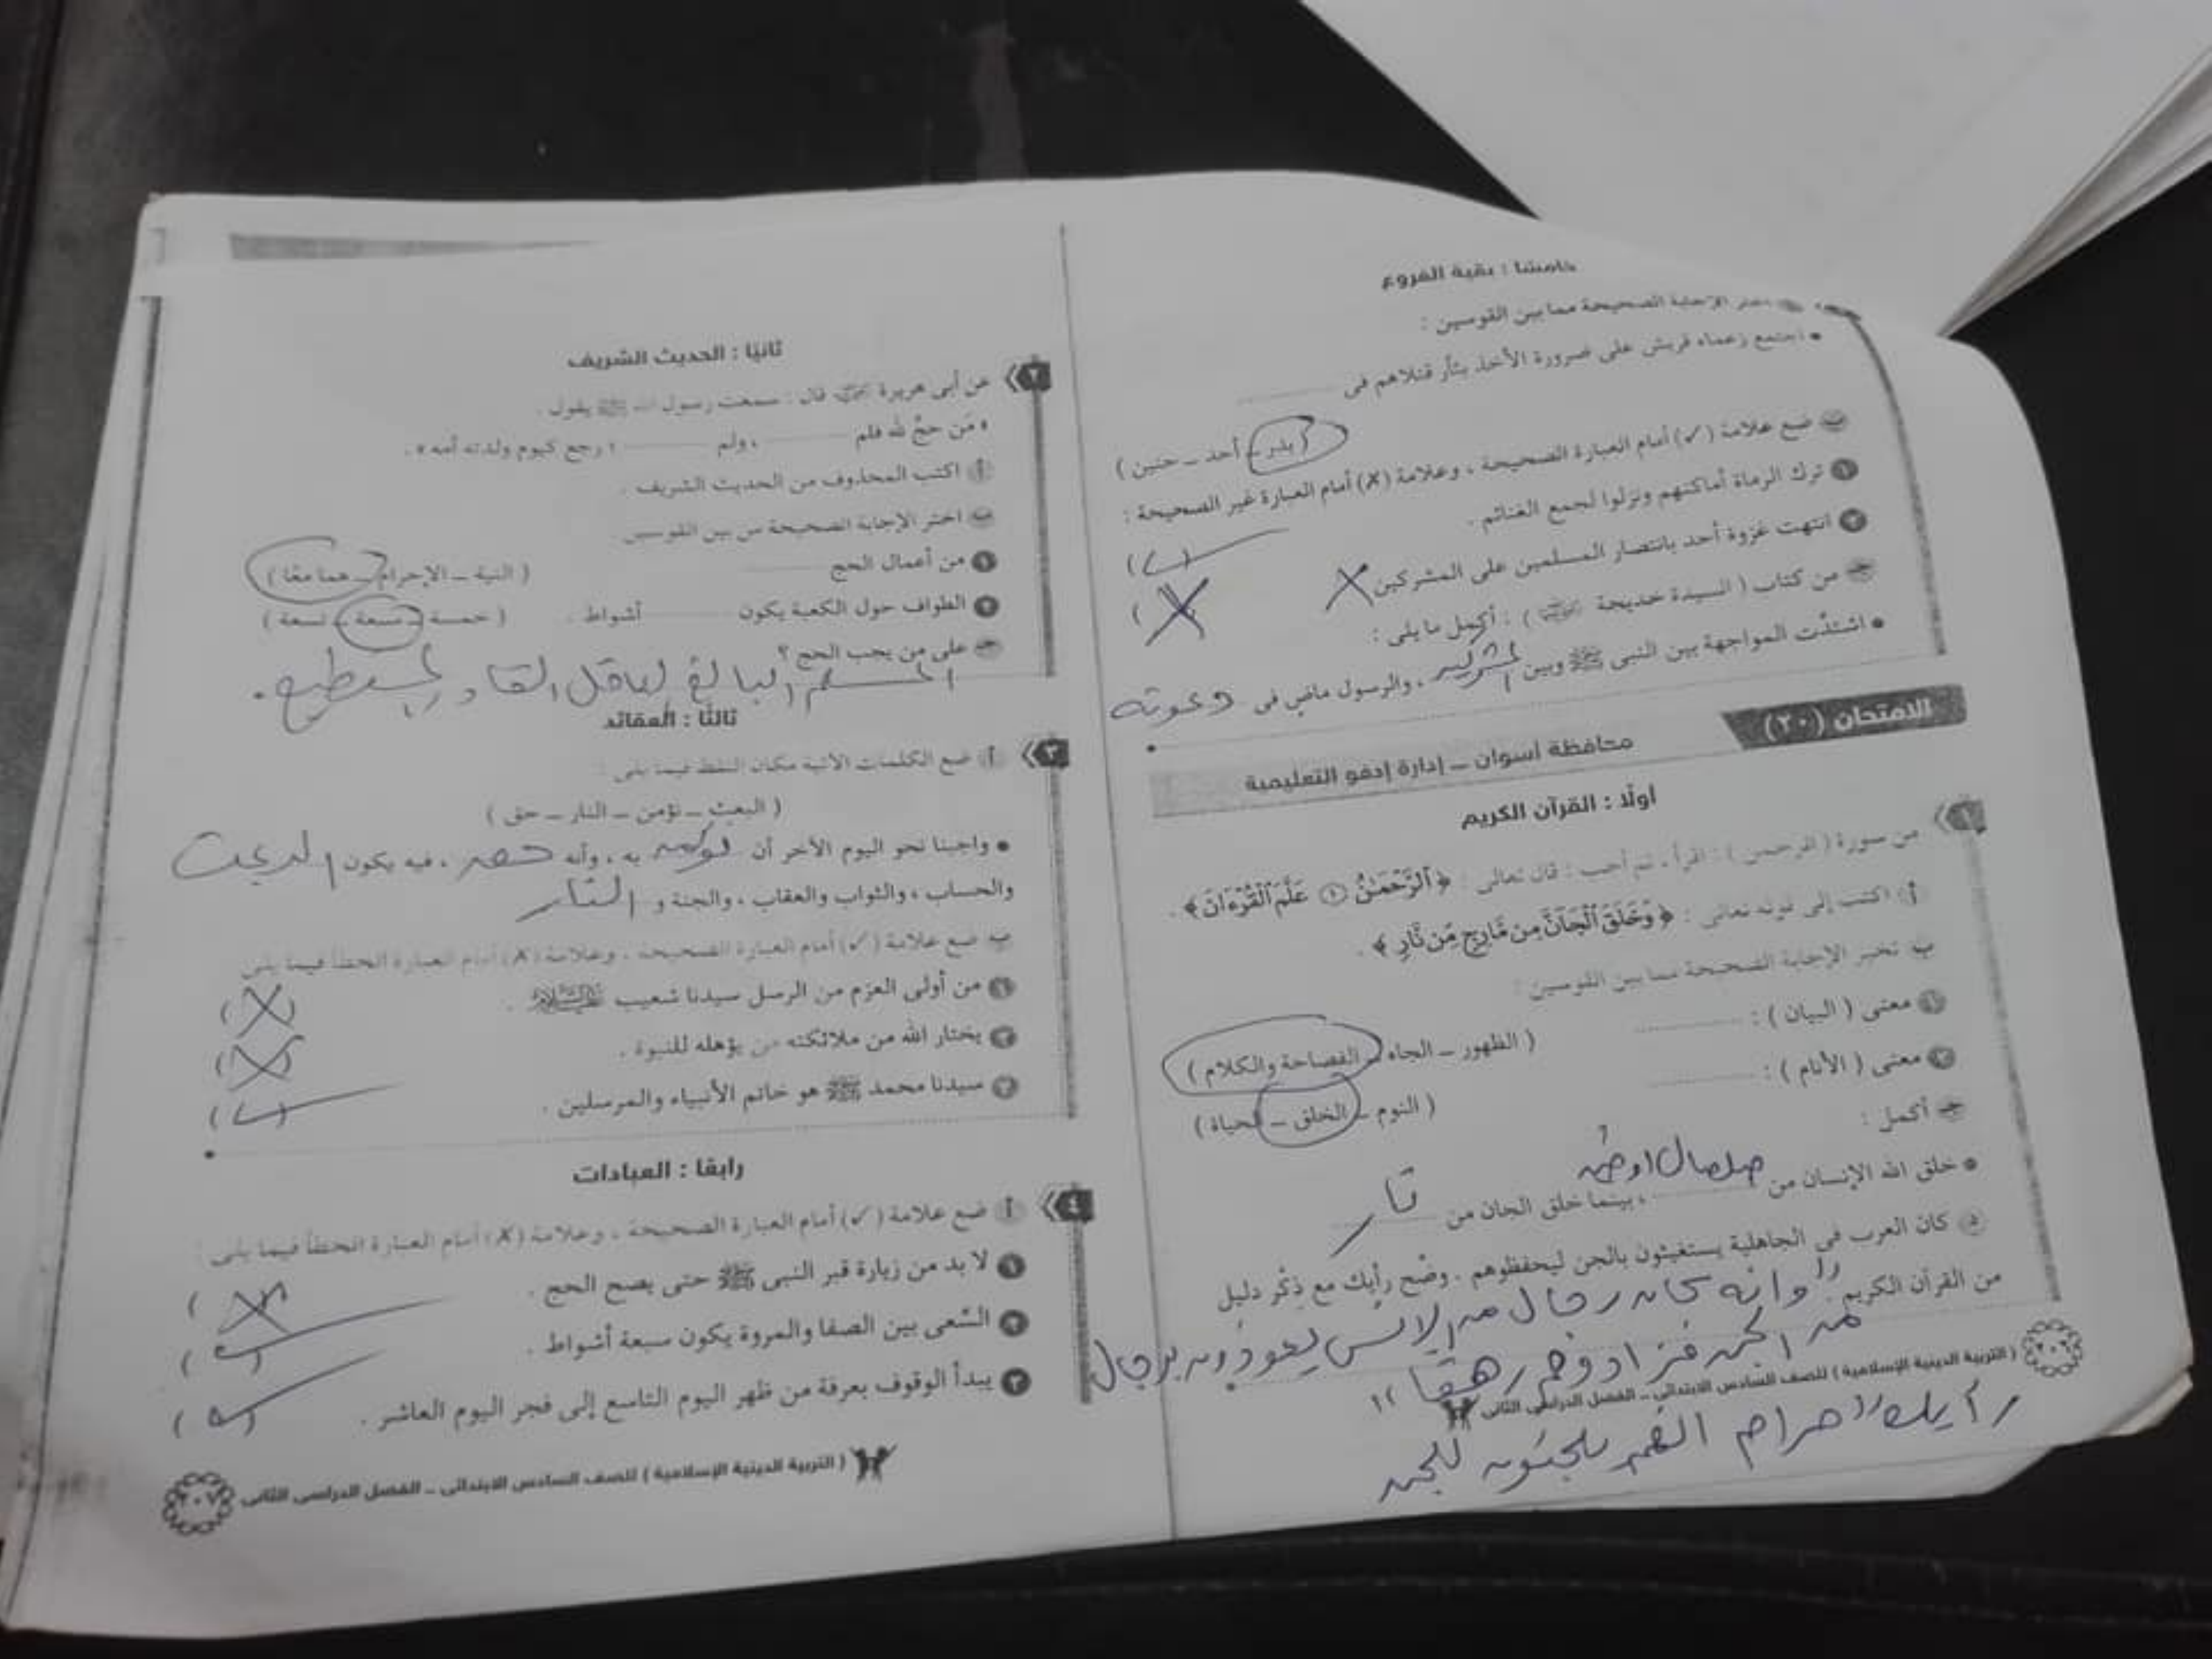 خامسًا : بقية الفروع
اختر الإجابة الصحيحة مما بين القوسين :
• اجتمع زعماء قريش على ضرورة الأخذ بثأر قتلاهم فى ............
( بدر – أحد – حنين )
ب ضع علامة (✓) أمام العبارة الصحيحة ، وعلامة (✗) أمام العبارة غير الصحيحة :
١ ترك الرماة أماكنهم ونزلوا لجمع الغنائم .
(✓)
٢ انتهت غزوة أحد بانتصار المسلمين على المشركين ✗
(✗)
جـ من كتاب ( السيدة خديجة ) : أكمل ما يلى :
• اشتدّت المواجهة بين النبى ﷺ وبين المشركين ، والرسول ماضٍ فى دعوته
الامتحان (٢٠)
محافظة أسوان – إدارة إدفو التعليمية
أولًا : القرآن الكريم
١ من سورة ( الرحمن ) : اقرأ ، ثم أجب : قال تعالى : ﴿ ٱلرَّحْمَٰنُ ١ عَلَّمَ ٱلْقُرْءَانَ ﴾ .
أ اكتب إلى قوله تعالى : ﴿ وَخَلَقَ ٱلْجَآنَّ مِن مَّارِجٍ مِّن نَّارٍ ﴾ .
ب تخير الإجابة الصحيحة مما بين القوسين :
١ معنى ( البيان ) : ............
( الظهور – الجاه – الفصاحة والكلام )
٢ معنى ( الأنام ) : ............
( النوم – الخلق – الحياة )
جـ أكمل :
• خلق الله الإنسان من صلصال او طين ، بينما خلق الجان من نار
د كان العرب فى الجاهلية يستغيثون بالجن ليحفظوهم . وضّح رأيك مع ذِكْر دليل
من القرآن الكريم " وانه كان رجال من الإنس يعوذون برجال
من الجن فزادوهم رهقا "
( التربية الدينية الإسلامية ) للصف السادس الابتدائى – الفصل الدراسى الثانى
٢٠٦
رأيك " حرام للجن
ثانيًا : الحديث الشريف
٢ عن أبى هريرة قال : سمعت رسول الله ﷺ يقول :
« مَن حجَّ لله فلم ............ ، ولم ............ ؛ رجع كيوم ولدته أمه » .
أ اكتب المحذوف من الحديث الشريف .
ب اختر الإجابة الصحيحة من بين القوسين
١ من أعمال الحج ............ ( النية – الإحرام – هما معًا )
٢ الطواف حول الكعبة يكون ............ أشواط . ( خمسة – سبعة – تسعة )
جـ على من يجب الحج ؟
المسلم البالغ العاقل القادر المستطيع .
ثالثًا : العقائد
٣ أ ضع الكلمات الآتية مكان النقط فيما يلى :
( البعث – نؤمن – النار – حق )
• واجبنا نحو اليوم الآخر أن نؤمن به ، وأنه حق ، فيه يكون البعث
والحساب ، والثواب والعقاب ، والجنة و النار
ب ضع علامة (✓) أمام العبارة الصحيحة ، وعلامة (✗) أمام العبارة الخطأ فيما يلى
١ من أولى العزم من الرسل سيدنا شعيب عليه السلام . (✗)
٢ يختار الله من ملائكته من يؤهله للنبوة . (✗)
٣ سيدنا محمد ﷺ هو خاتم الأنبياء والمرسلين . (✓)
رابعًا : العبادات
٤ أ ضع علامة (✓) أمام العبارة الصحيحة ، وعلامة (✗) أمام العبارة الخطأ فيما يلى :
١ لا بد من زيارة قبر النبى ﷺ حتى يصح الحج . (✗)
٢ السَّعى بين الصفا والمروة يكون سبعة أشواط . (✓)
٣ يبدأ الوقوف بعرفة من ظهر اليوم التاسع إلى فجر اليوم العاشر . (✓)
( التربية الدينية الإسلامية ) للصف السادس الابتدائى – الفصل الدراسى الثانى
٢٠٧